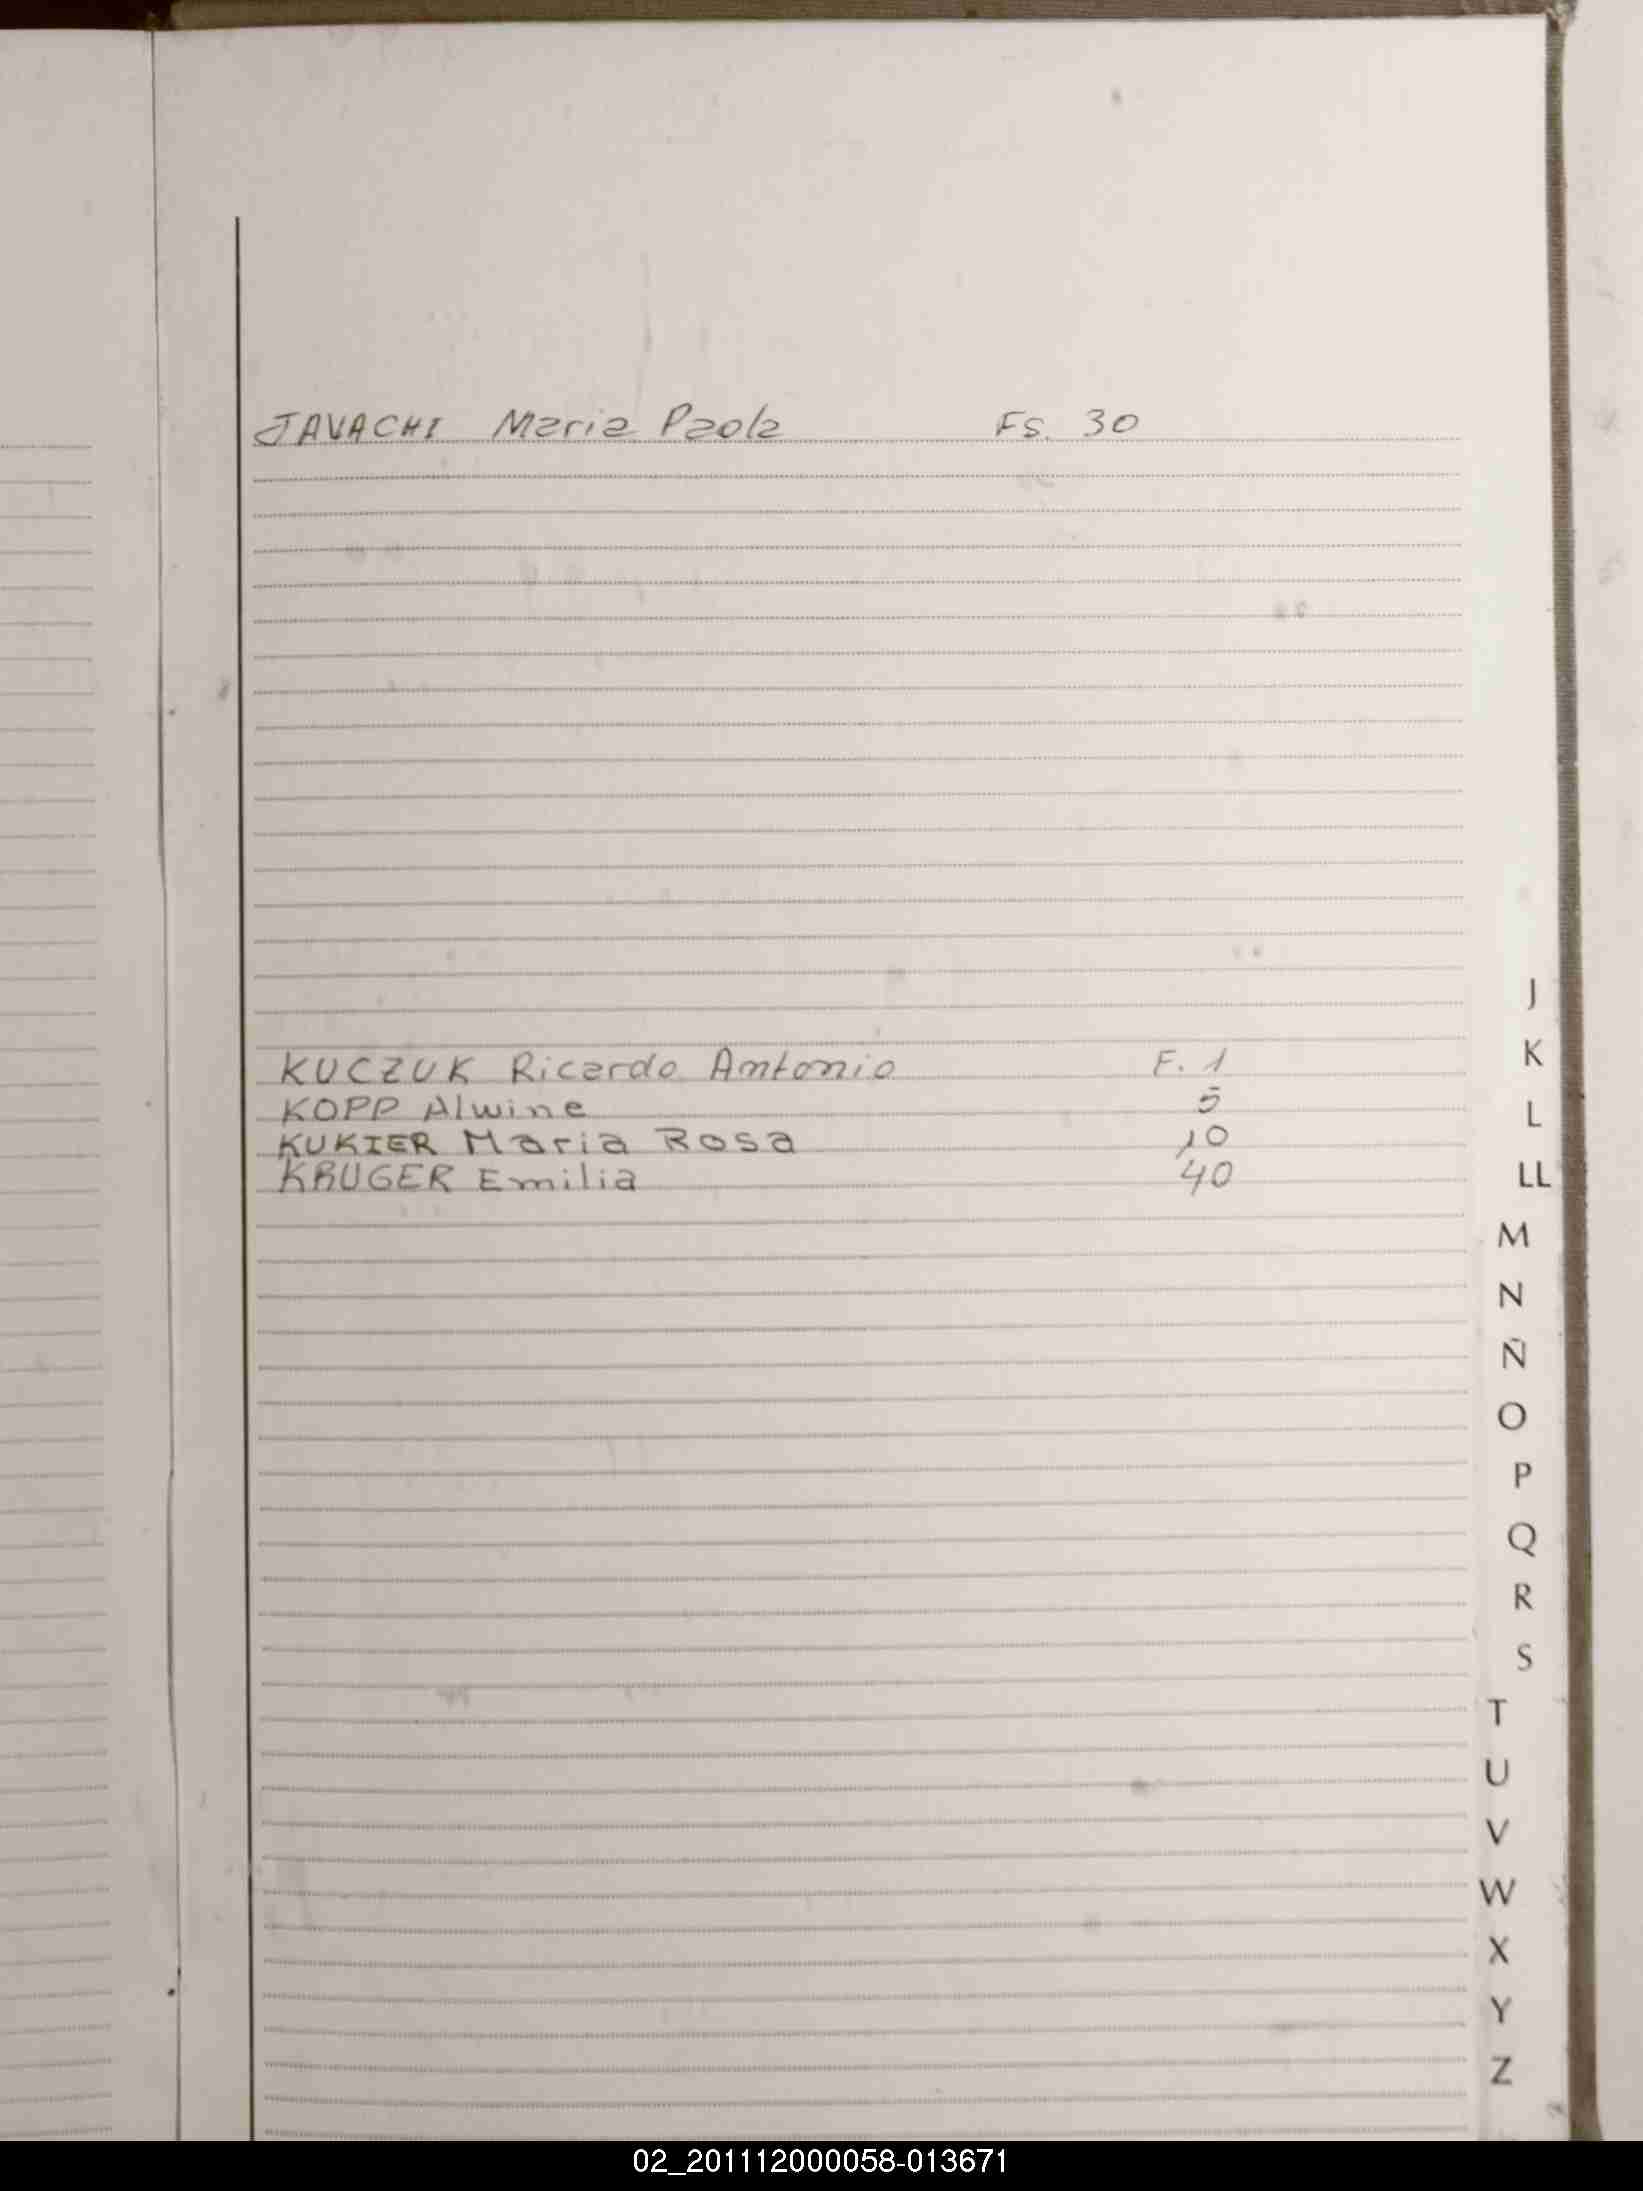 JAVACHI Maria Paola Fs. 30
KUCZUK Ricardo Antonio F. 1
KOPP Alwine 5
KUKIER Maria Rosa 10
KRUGER Emilia 40
J
K
L
LL
M
N
Ñ
O
P
Q
R
S
T
U
V
W
X
Y
Z
02_201112000058-013671